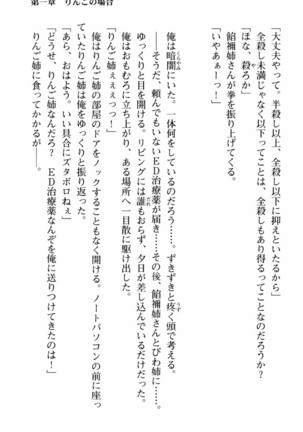 第一章　りんごの場合
「大丈夫やって。半殺し以上、全殺し以下に抑えといたるから」
全殺し未満じゃなく以下ってことは、全殺しもあり得るってことなのだろうか？
「ほな、殺ろか」
餡禰姉さんが拳を振り上げてくる。
「いやぁぁーっ！」
俺は暗闇にいた。一体何をしているのだろう……。ずきずきと疼く頭で考える。
――そうだ、頼んでもいないＥＤ治療薬が届き……その後、餡禰姉さんとびわ姉に……。
ゆっくりと目を開ける。リビングには誰もおらず、夕日が差し込んでいるだけだった。
俺はおもむろに立ち上がり、ある場所へ一目散に駆け出した。
「りんご姉ぇぇぇっ！」
俺はりんご姉の部屋のドアをノックすることもなく開ける。ノートパソコンの前に座っ
ていたりんご姉は俺をゆっくりと振り返った。
「あら、おはよう。いい具合にズタボロねぇ」
「どうせ、りんご姉なんだろ？　ＥＤ治療薬なんぞを俺に送りつけてきたのは！」
りんご姉に食ってかかるが――。